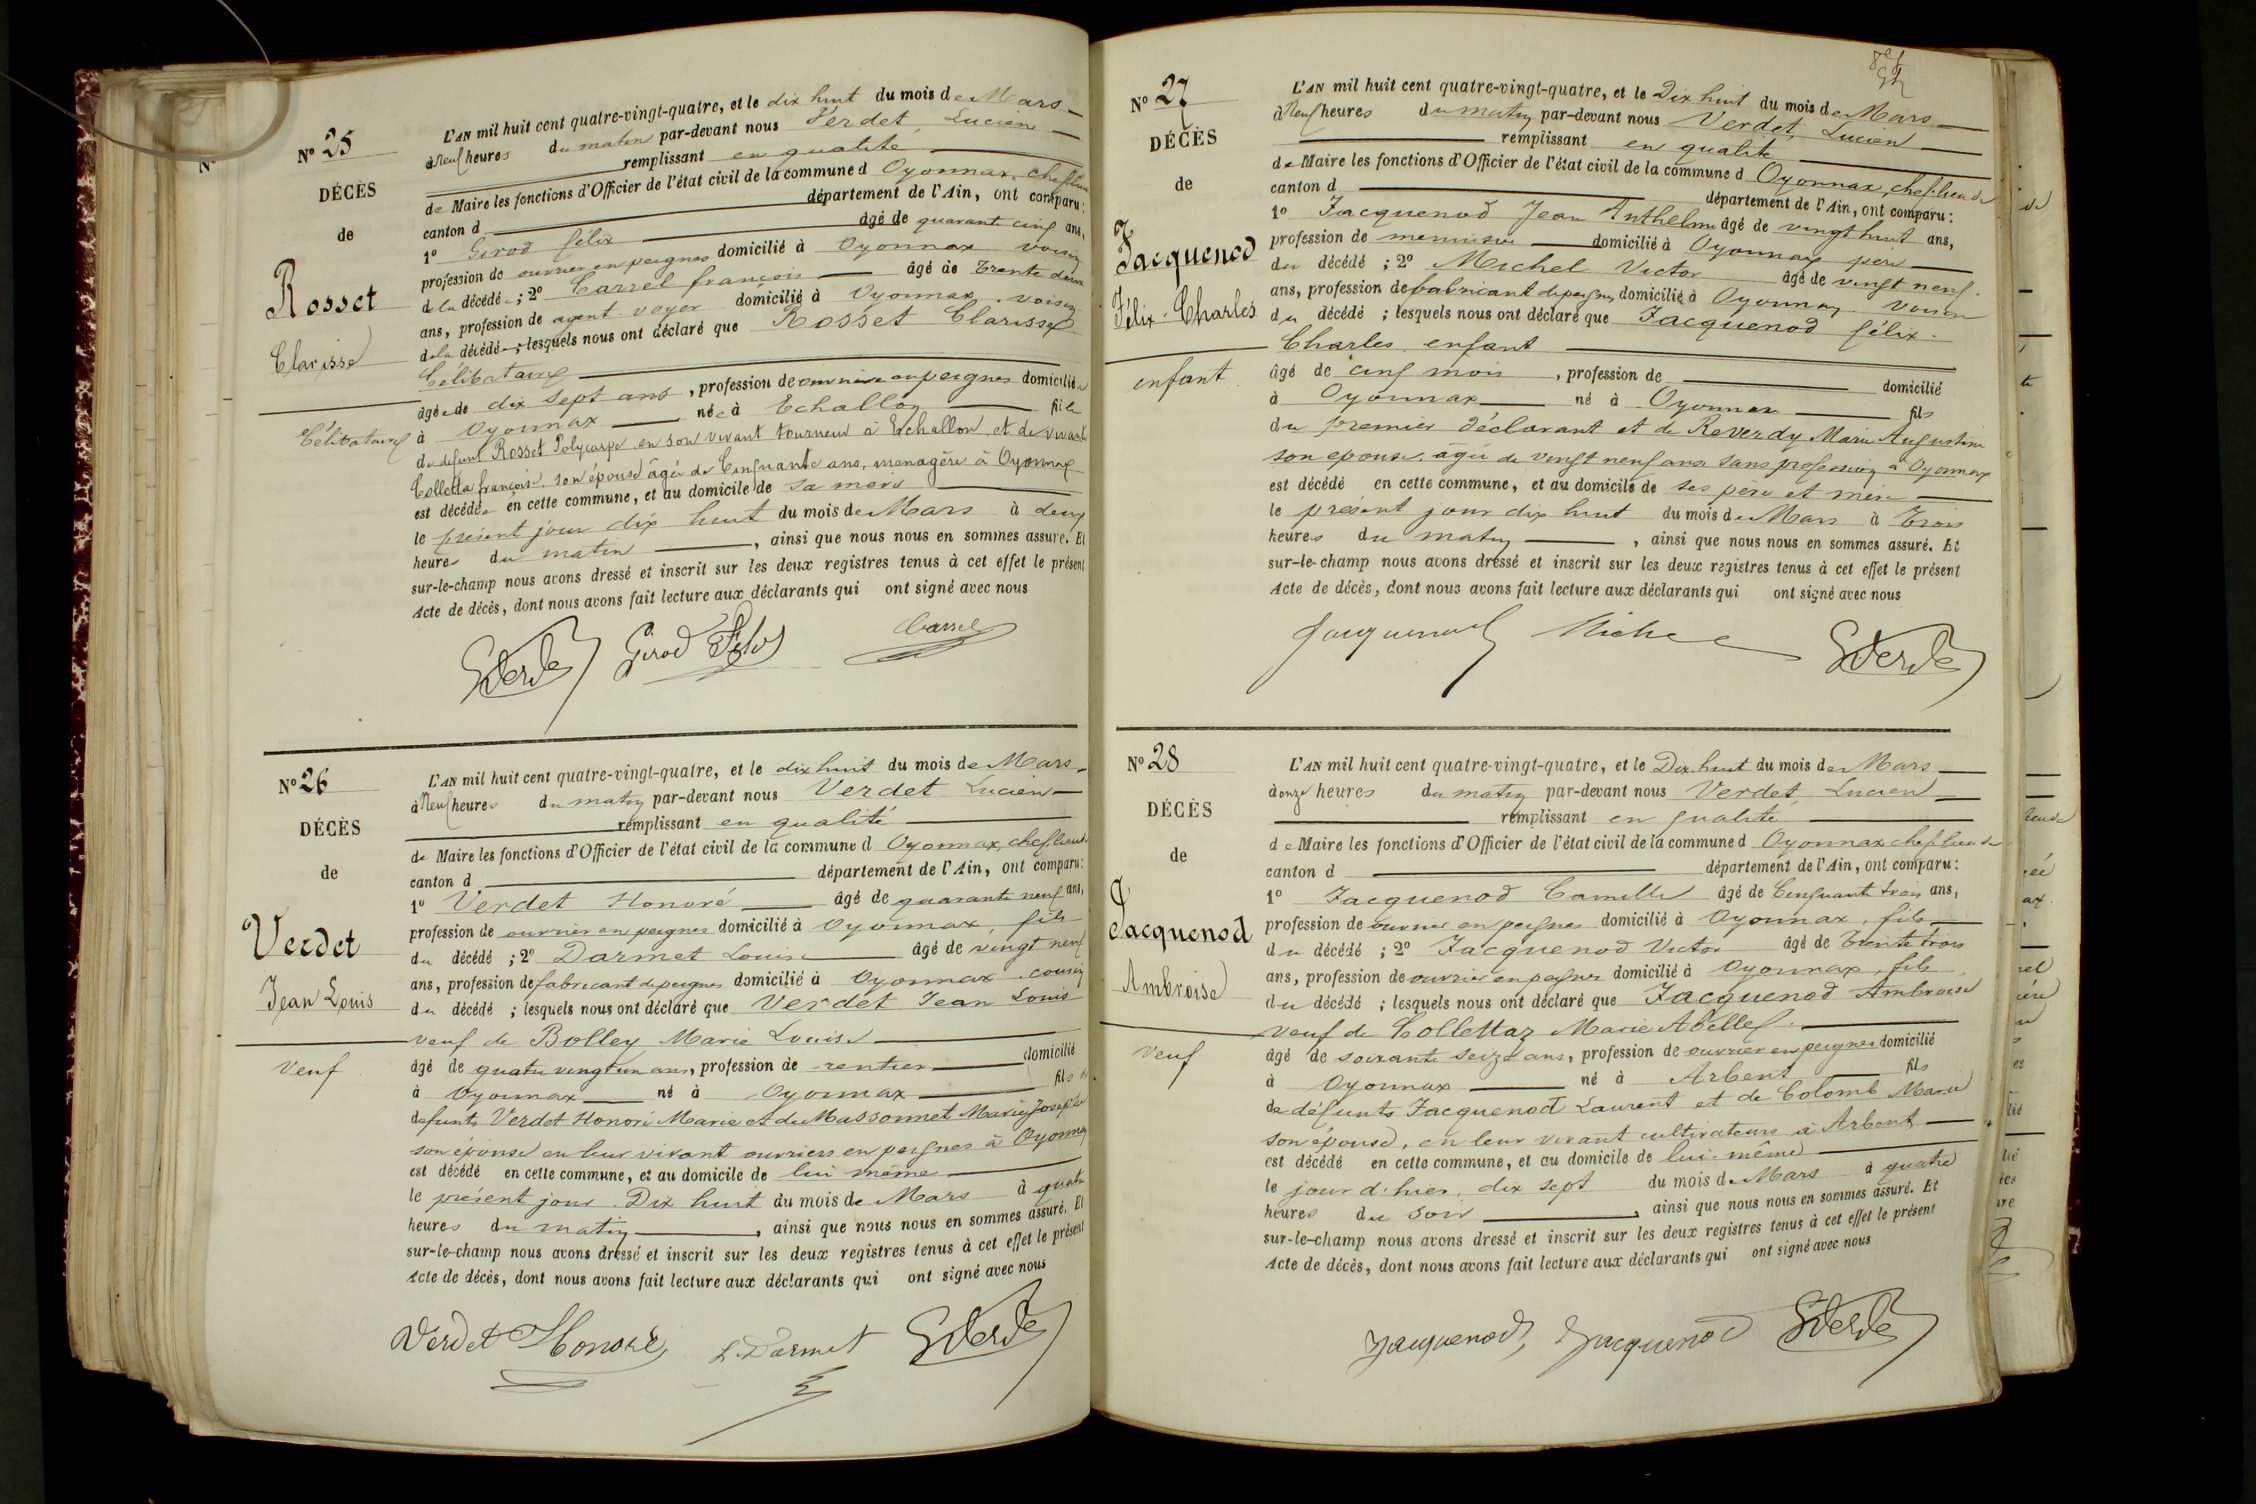 N° 25
DÉCÈS
de
Rosset
Clarisse
Célibataire
L'AN mil huit cent quatre-vingt-quatre, et le dix huit du mois de Mars
à Neuf heures du matin par-devant nous Verdet, Lucien
remplissant en qualité
de Maire les fonctions d'Officier de l'état civil de la commune d Oyonnax, chef lieu
canton d département de l'Ain, ont comparu:
1° Girod félix âgé de quarante cinq ans,
profession de ouvrier en peignes domicilié à Oyonnax voisin
de la décédée; 2° Carrel françois âgé de Trente deux
ans, profession de agent-voyer domicilié à Oyonnax, voisin
de la décédée; lesquels nous ont déclaré que Rosset Clarisse
Célibataire
âgée de dix sept ans, profession de ouvrière en peignes domiciliée
à Oyonnax née à Echallon fille
du defunt Rosset Polycarpe en son vivant tourneur à Echallon et de vivante
Colletta françoise son épouse âgée de Cinquante ans, menagère à Oyonnax
est décédée en cette commune, et au domicile de sa mère
le présent jour dix huit du mois de Mars à deux
heures du matin, ainsi que nous nous en sommes assuré. Et
sur-le-champ nous avons dressé et inscrit sur les deux registres tenus à cet effet le présent
Acte de décès, dont nous avons fait lecture aux déclarants qui ont signé avec nous
Girod Félix Carrel
N° 26
DÉCÈS
de
Verdet
Jean Louis
Veuf
L'AN mil huit cent quatre-vingt-quatre, et le dix huit du mois de Mars
à Neuf heures du matin par-devant nous Verdet Lucien
remplissant en qualité
de Maire les fonctions d'Officier de l'état civil de la commune d Oyonnax, chef lieu de
canton d département de l'Ain, ont comparu:
1° Verdet Honoré âgé de quarante neuf ans,
profession de ouvrier en peignes domicilié à Oyonnax, fils
du décédé; 2° Darmet Louis âgé de vingt neuf
ans, profession de fabricant de peignes domicilié à Oyonnax, cousin
du décédé; lesquels nous ont déclaré que Verdet Jean Louis
veuf de Bolley Marie Louise
âgé de quatre vingt un ans, profession de rentier domicilié
à Oyonnax né à Oyonnax fils de
defunts Verdet Honoré Marie et de Massonnet Marie Josephe
son épouse en leur vivant ouvriers en peignes à Oyonnax
est décédé en cette commune, et au domicile de lui même
le présent jour Dix huit du mois de Mars à quatre
heures du matin, ainsi que nous nous en sommes assuré. Et
sur-le-champ nous avons dressé et inscrit sur les deux registres tenus à cet effet le présent
Acte de décès, dont nous avons fait lecture aux déclarants qui ont signé avec nous
Verdet Honoré L Darmet
N° 27
DÉCÈS
de
Jacquenod
Félix-Charles
enfant
L'AN mil huit cent quatre-vingt-quatre, et le Dix huit du mois de Mars
à Neuf heures du matin par-devant nous Verdet, Lucien
remplissant en qualité
de Maire les fonctions d'Officier de l'état civil de la commune d Oyonnax chef lieu de
canton d département de l'Ain, ont comparu:
1° Jacquenod Jean Anthelme âgé de vingt huit ans,
profession de menuisier domicilié à Oyonnax père
du décédé; 2° Michel Victor âgé de vingt neuf
ans, profession de fabricant de peignes domicilié à Oyonnax voisin
du décédé; lesquels nous ont déclaré que Jacquenod félix
Charles enfant
âgé de cinq mois, profession de domicilié
à Oyonnax né à Oyonnax fils
du premier déclarant et de Reverdy Marie Augustine
son epouse âgée de vingt neuf ans sans profession à Oyonnax
est décédé en cette commune, et au domicile de ses père et mère
le présent jour dix huit du mois de Mars à Trois
heures du matin, ainsi que nous nous en sommes assuré. Et
sur-le-champ nous avons dressé et inscrit sur les deux registres tenus à cet effet le présent
Acte de décès, dont nous avons fait lecture aux déclarants qui ont signé avec nous
Jacquenod Michel
N° 28
DÉCÈS
de
Jacquenod
Ambroise
Veuf
L'AN mil huit cent quatre-vingt-quatre, et le Dix huit du mois de Mars
à onze heures du matin par-devant nous Verdet, Lucien
remplissant en qualité
de Maire les fonctions d'Officier de l'état civil de la commune d Oyonnax chef lieu de
canton d département de l'Ain, ont comparu:
1° Jacquenod Camille âgé de Cinquante trois ans,
profession de ouvrier en peignes domicilié à Oyonnax, fils
du décédé; 2° Jacquenod Victor âgé de Trente trois
ans, profession de ouvrier en peignes domicilié à Oyonnax, fils
du décédé; lesquels nous ont déclaré que Jacquenod Ambroise
veuf de Collettaz Marie Abelle
âgé de soixante seize ans, profession de ouvrier en peignes domicilié
à Oyonnax né à Arbent fils
de défunts Jacquenod Laurent et de Colomb Marie
son épouse, en leur vivant cultivateurs à Arbent
est décédé en cette commune, et au domicile de lui-même
le jour d'hier, dix sept du mois de Mars à quatre
heures du soir, ainsi que nous nous en sommes assuré. Et
sur-le-champ nous avons dressé et inscrit sur les deux registres tenus à cet effet le présent
Acte de décès, dont nous avons fait lecture aux déclarants qui ont signé avec nous
Jacquenod Jacquenod